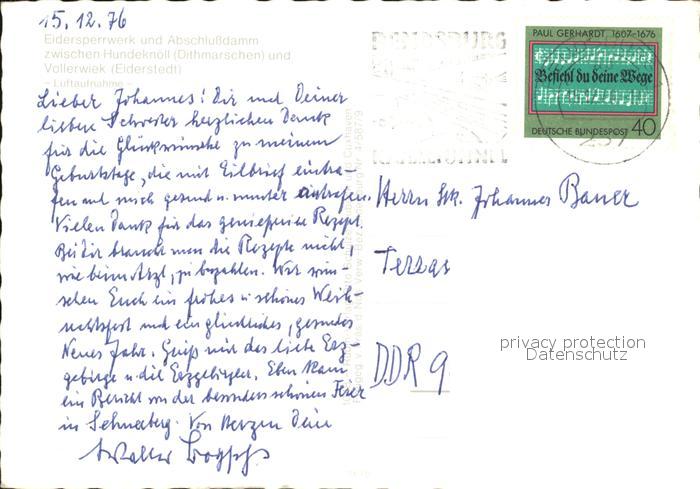 15.12.76
Eidersperrwerk und Abschlußdamm
zwischen Hundeknöll (Dithmarschen) und
Vollerwiek (Eiderstedt)
– Luftaufnahme –
Lieber Johannes! Dir und Deiner
lieben Schwester herzlichen Dank
für die Glückwünsche zu meinem
Geburtstage, die mit Eilbrief eintra-
fen und mich gesund u. munter antrafen.
Vielen Dank für das Rezept.
Bei Dir braucht man die Rezepte nicht,
wie beim Arzt, zu bezahlen. Wir wün-
schen Euch ein frohes u. schönes Weih-
nachtsfest und ein glückliches, gesundes
Neues Jahr. Grüß mir das liebe Erz-
gebirge u. die Erzgebirgler. Eben kam
ein Bericht von der besonders schönen Feier
in Schneeberg. Von Herzen Dein
Walter
PAUL GERHARDT 1607-1676
Befiehl du deine Wege
DEUTSCHE BUNDESPOST 40
RENDSBURG
Herrn Johannes Bauer
DDR 9
privacy protection
Datenschutz